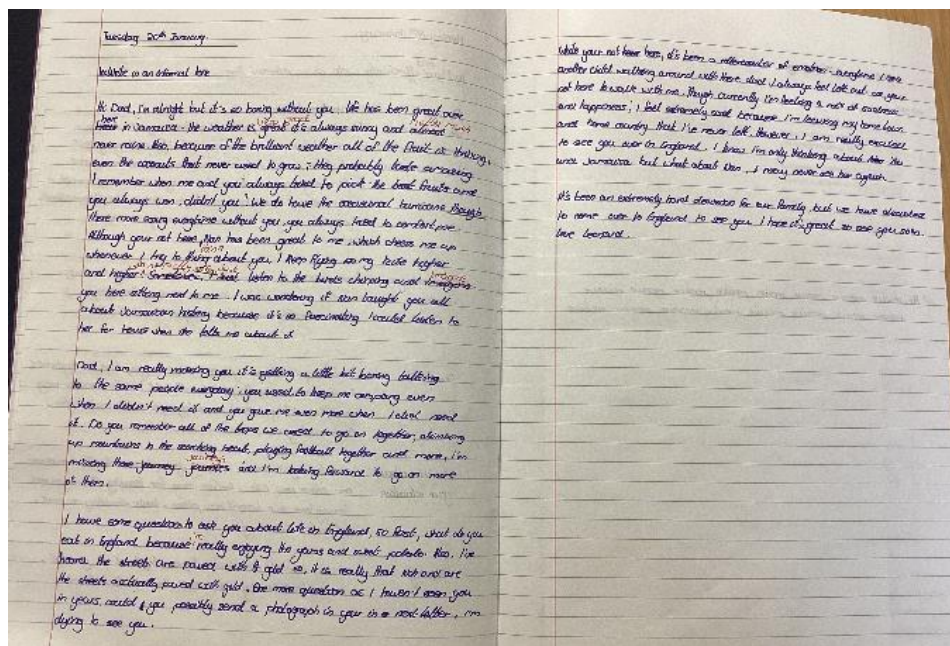 Tuesday 20th January.
to write in an informal tone
Hi Dad, I'm alright but it's so boring without you. Life has been great over
here in Jamaica. the weather is great it's always sunny and almost
never rains. Also, because of the brilliant weather all of the fruit is thriving,
even the coconuts that never used to grow; they probably taste amazing.
I remember when me and you always tried to pick the best fruits and
you always won, didn't you! We do have the occasional hurricane though
there more scary everytime without you, you always tried to comfort me.
Although your not here, Nan has been great to me, which cheers me up
whenever I try to think about you, I keep flying so my kite higher
and higher. Sometimes, I listen to the birds chirping and imagine
you here sitting next to me. I was wondering if Nan taught you all
about Jamaican history because it's so fascinating I could listen to
her for hours when she tells me about it
Dad, I am really missing you it's getting a little bit boring talking
to the same people everyday; you used to keep me company even
when I didn't need it and you gave me even more when I did need
it. Do you remember all of the trips we used to go on together, climbing
up mountains in the scorching heat, playing football together and more, I'm
missing those journey journeys and I'm looking forward to go on more
of them.
I have some questions to ask you about life in England, so first, what do you
eat in England because really enjoying the yams and sweet potato. Also, I've
heard the streets are paved with gold so, it is really that rich and are
the streets actually paved with gold. One more question as I haven't seen you
in years, could you possibly send a photograph in your in a next letter, I'm
dying to see you.
While your not here, it's been a rollercoaster of emotion - everytime I see
another child walking around with there dad I always feel left out as your
not here to walk with me, though currently I'm feeling a mix of sadness
and happiness; I feel extremely sad because I'm leaving my home town
and home country that I've never left. However, I am really excited
to see you over in England. I know I'm only thinking about You
and Jamaica but what about Nan, I may never see her again.
It's been an extremely hard decision for our family, but we have decided
to come over to England to see you. I hope it's great to see you soon.
love Leonard.